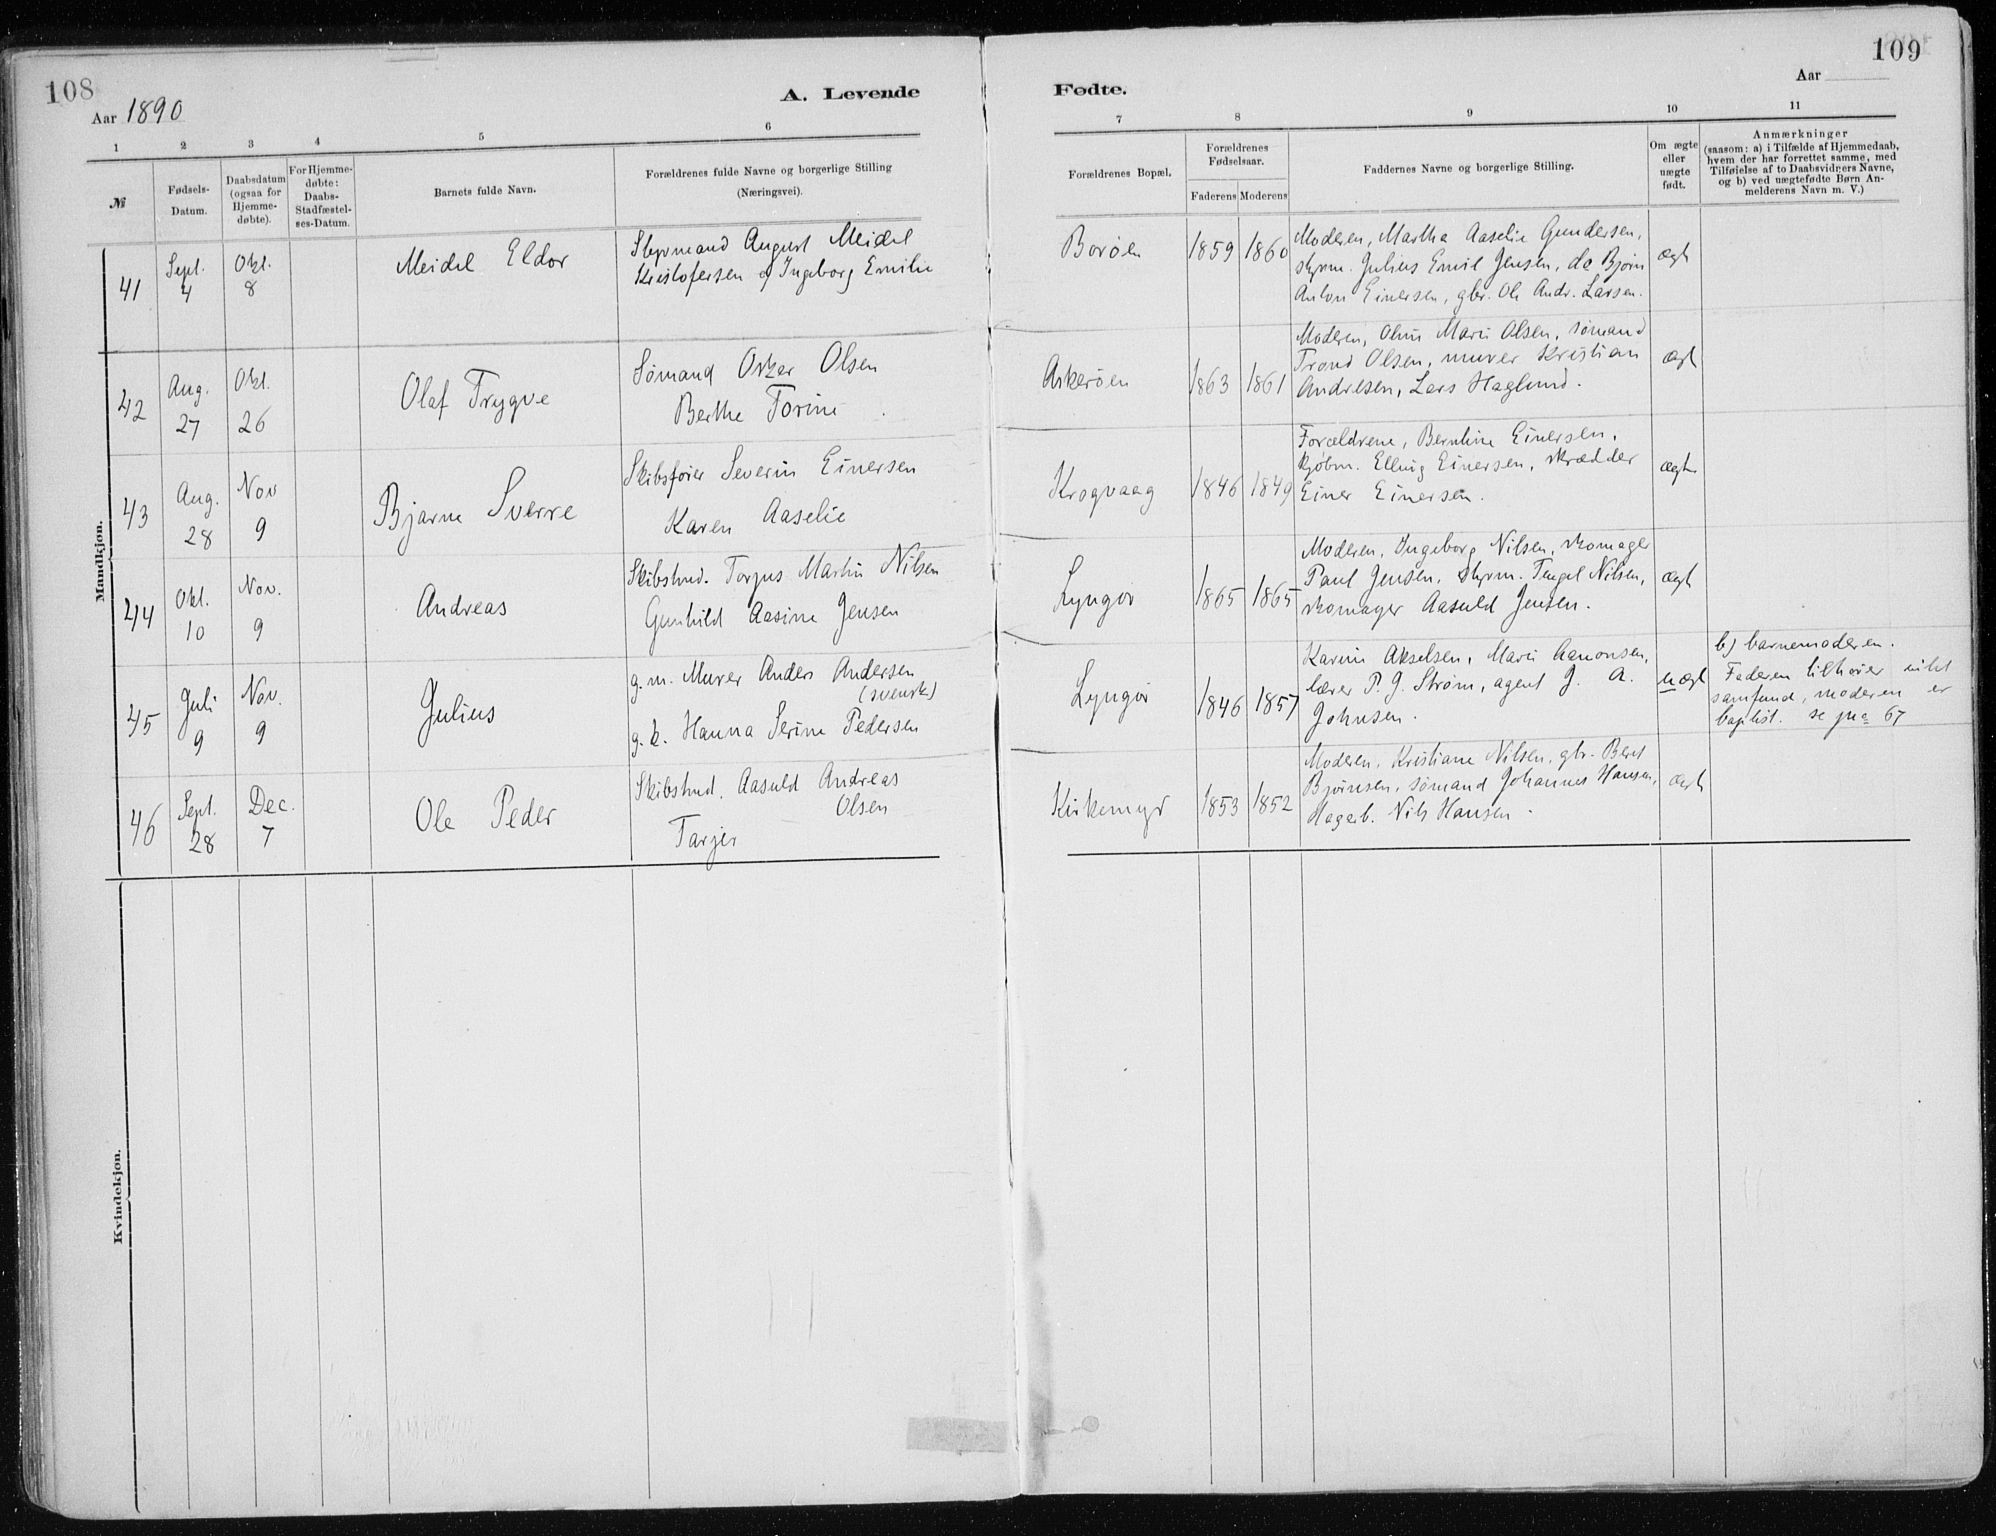 108
Aar 1890
A. Levende
1
2
3
4
5
6
№
Fødsels-
Datum.
Daabsdatum
(ogsaa for
Hjemme-
døbte).
For Hjemme-
døbte:
Daabs-
Stadfæstel-
ses-Datum.
Barnets fulde Navn.
Forældrenes fulde Navne og borgerlige Stilling
(Næringsvei).
Mandkjøn.
41
Sept.
4
Okt.
8
Meidel Eldor
Styrmand August Meidel
Kristofersen og Ingeborg Emilie
42
Aug.
27
Okt.
26
Olaf Trygve
Sømand Osker Olsen
Berthe Torine
43
Aug.
28
Nov
9
Bjarne Sverre
Skibsfører Severin Einersen
Karen Aaselie
44
Okt.
10
Nov.
9
Andreas
Skibstmd. Torjus Martin Nilsen
Gunhild Aasine Jensen
45
Juli
9
Nov.
9
Julius
g. m. Murer Anders Andersen
(svensk)
g. k. Hanna Serine Pedersen
46
Sept.
28
Dec.
7
Ole Peder
Skibstmd. Aasuld Andreas
Olsen
Tarjer
Kvindekjøn.
109
Aar
Fødte.
7
8
9
10
11
Forældrenes Bopæl.
Forældrenes
Fødselsaar.
Faderens Moderens
Faddernes Navne og borgerlige Stilling.
Om ægte
eller
uægte
født.
Anmærkninger
(saasom: a) i Tilfælde af Hjemmedaab,
hvem der har forrettet samme, med
Tilføielse af to Daabsvidners Navne,
og b) ved uægtefødte Børn An-
melderens Navn m. V.)
Borøen
1859 1860
Moderen, Martha Aaselie Gundersen,
styrm. Julius Emil Jensen, do Bjørn
Anton Einersen, gbr. Ole Andr. Larsen.
ægt
Askerøen
1863 1861
Moderen, Oline Marie Olsen, sømand
Trond Olsen, murer Kristian
Andresen, Lars Haglund.
ægt
Krogvaag
1846 1849
Forældrene, Berntine Einersen,
kjøbm. Elling Einersen, skrædder
Einer Einersen.
ægte
Lyngør
1865 1865
Moderen, Ingeborg Nilsen, skomager
Paul Jensen, styrm. Tengel Nilsen,
skomager Aasuld Jensen.
ægt
Lyngør
1846 1857
Karine Akselsen, Marie Aanonsen,
lærer P. J. Strøm, agent J. A.
Johnsen.
uægt
b) barnemoderen.
Faderen tilhører intet
samfund, moderen er
baptist. se pag 67
Kirkemyr
1853 1852
Moderen, Kristiane Nilsen, gbr. Bernt
Bjørnsen, sømand Johannes Hansen,
Nils Hansen.
ægt